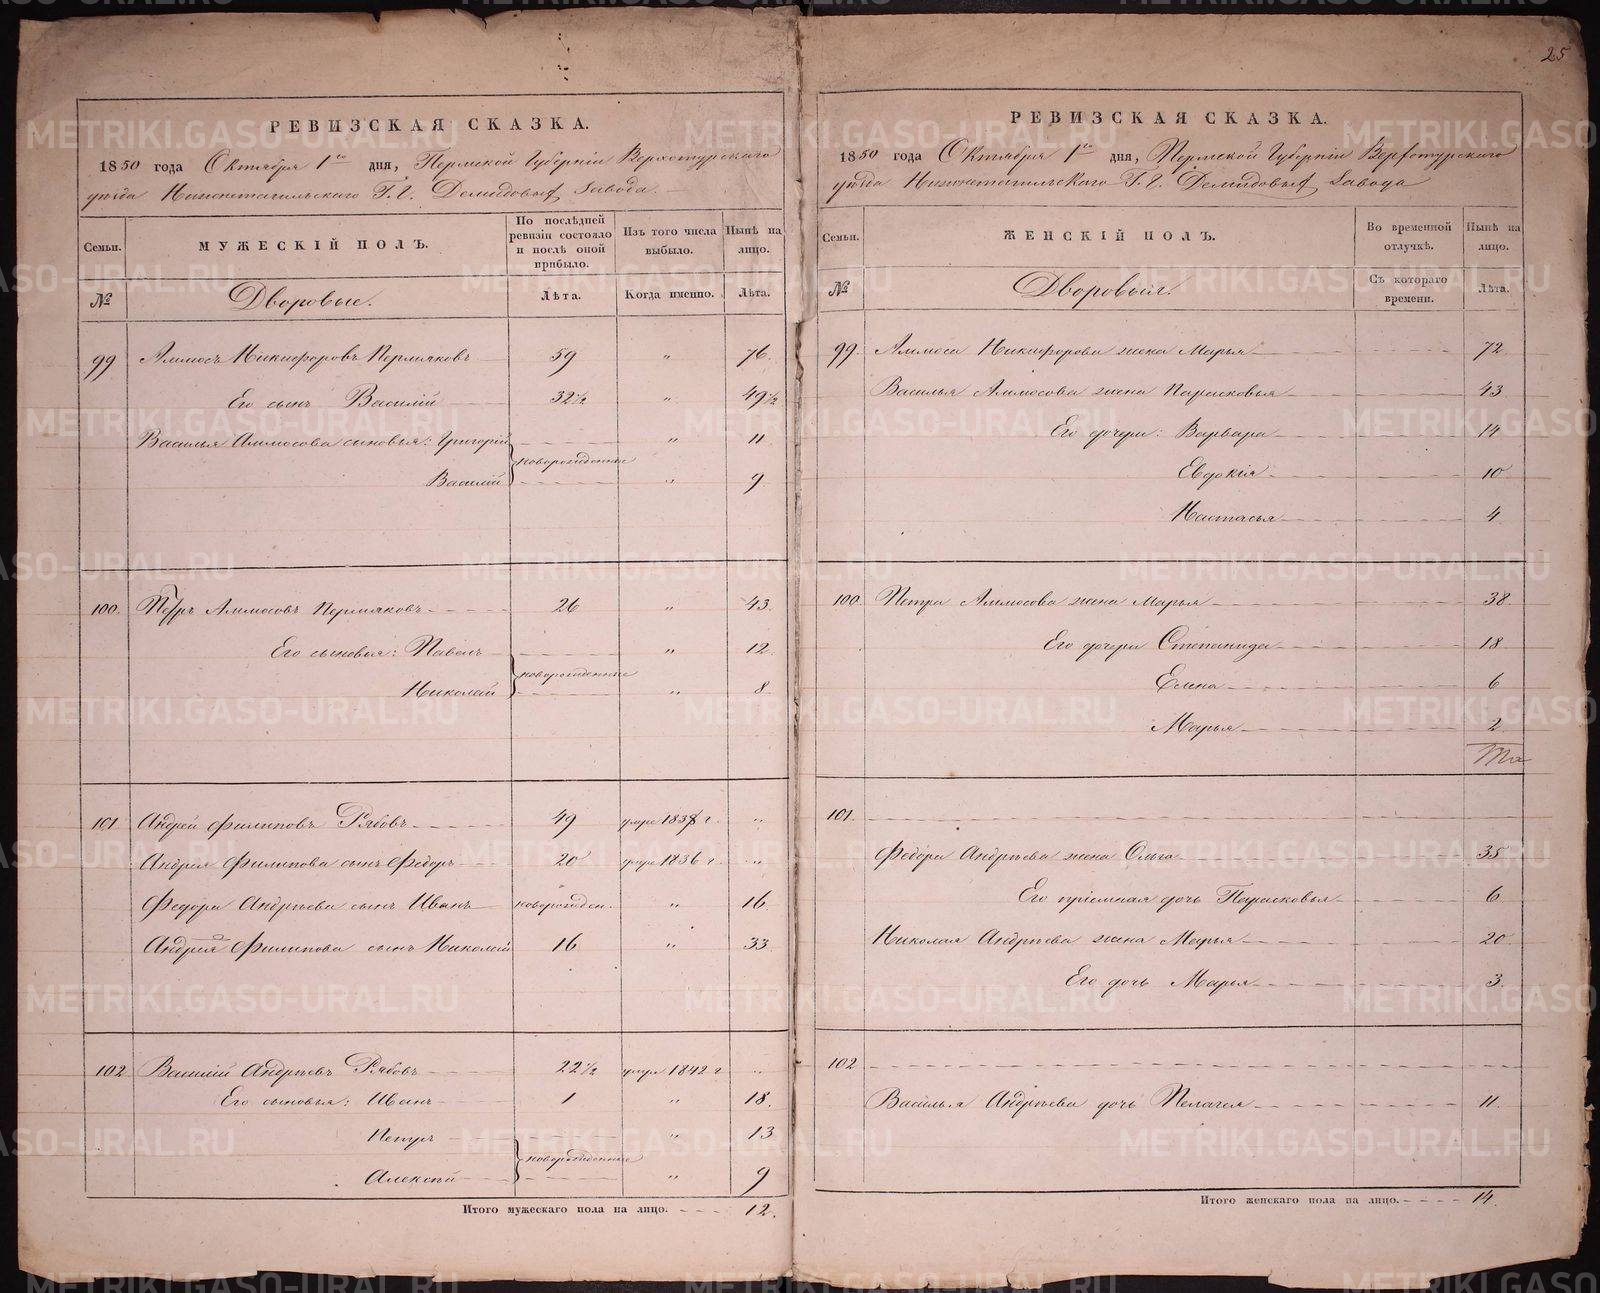 25
РЕВИЗСКАЯ СКАЗКА.
1850 года Октября 1го дня, Пермской Губерніи Верхотурскаго
уѣзда Нижнетагильскаго Г.Г. Демидовых Завода.
Семьи.
МУЖЕСКІЙ ПОЛЪ.
По послѣдней ревизіи состояло и послѣ оной прибыло.
Изъ того числа выбыло.
Нынѣ на лицо.
№ Дворовые. Лѣта. Когда именно. Лѣта.
99 Аммосъ Никифоровъ Пермяковъ 59 " 76.
Его сынъ Василій 32½ " 49½
Василья Аммосова сыновья: Григорій " 11
новорожденные
Василій " 9
100. Петръ Аммосовъ Пермяковъ 26 " 43.
Его сыновья: Павелъ " 12.
новорожденные
Николай " 8.
101 Андрей Филиповъ Рябовъ 49 умре 1837 г. "
Андрея Филипова сынъ Федоръ 20 умре 1836 г. "
Федора Андрѣева сынъ Иванъ новорожден. " 16.
Андрея Филипова сынъ Николай 16 " 33
102 Василій Андрѣевъ Рябовъ 22½ умре 1842 г "
Его сыновья: Иванъ 1 " 18.
Петръ " 13
новорожденные
Алексѣй " 9
Итого мужескаго пола на лицо. 12.
РЕВИЗСКАЯ СКАЗКА.
1850 года Октября 1го дня, Пермской Губерніи Верхотурскаго
уѣзда Нижнетагильскаго Г.Г. Демидовых Завода
Семьи.
ЖЕНСКІЙ ПОЛЪ.
Во временной отлучкѣ.
Нынѣ на лицо.
№ Дворовыя. Съ котораго времени. Лѣта.
99. Аммоса Никифорова жена Марья 72
Василья Аммосова жена Парасковья 43
Его дочери: Варвара 14
Евдокія 10
Настасья 4
100. Петра Аммосова жена Марья 38.
Его дочери Степанида 18
Елена 6
Марья 2
101.
Федора Андрѣева жена Ольга 35
Его пріемная дочь Парасковья 6
Николая Андрѣева жена Марья 20
Его дочь Марья 3
102
Василья Андрѣева дочь Пелагея 11.
Итого женскаго пола на лицо. 14.
METRIKI.GASO-URAL.RU